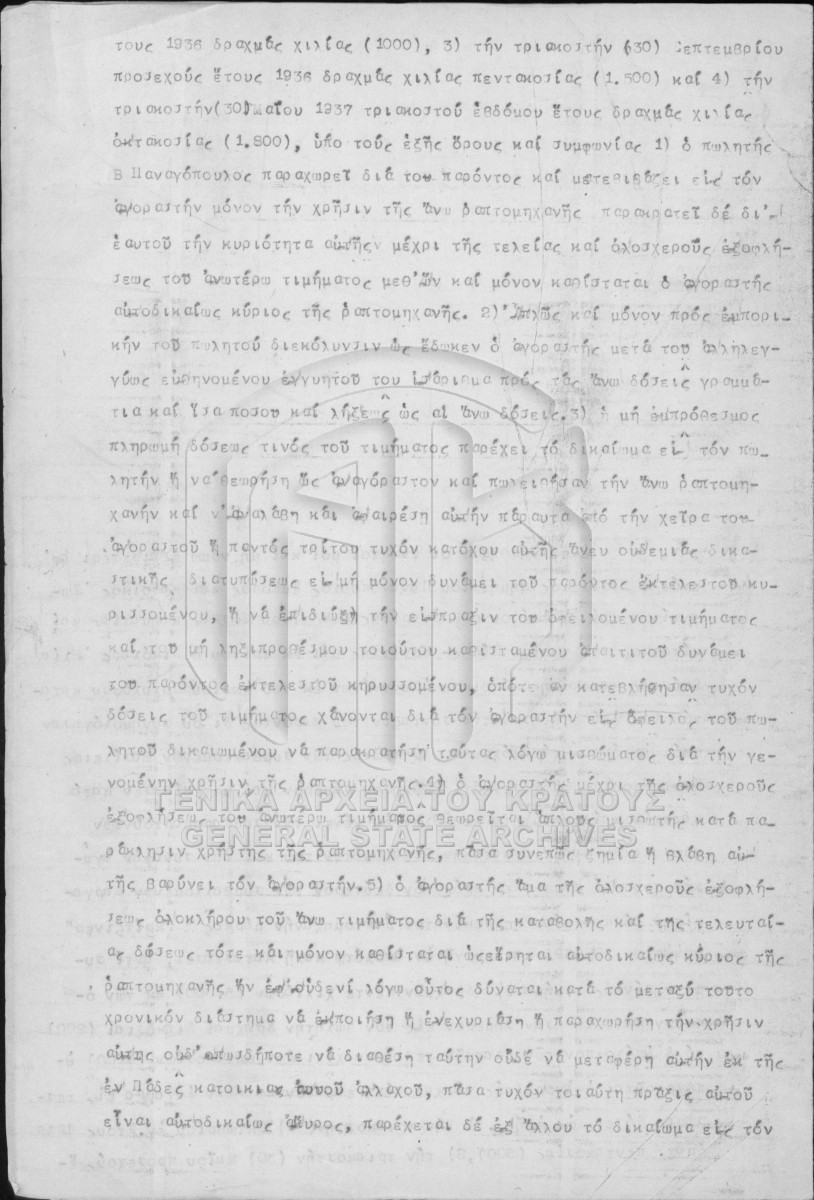 τους 1936 δραχμάς χιλίας (1000), 3) τήν τριακοστήν (30) Σεπτεμβρίου
προσεχούς ἔτους 1936 δραχμάς χιλίας πεντακοσίας (1.500) καί 4) τήν
τριακοστήν (30) Μαΐου 1937 τριακοστοῦ ἑβδόμου ἔτους δραχμάς χιλίας
ὀκτακοσίας (1.800), ὑπο τούς ἑξῆς ὅρους καί συμφωνίας 1) ὁ πωλητής
Β Παναγόπουλος παραχωρεῖ διά του παρόντος καί μεταβιβάζει εἰς τόν
ἀγοραστήν μόνον τήν χρῆσιν τῆς ἄνω ραπτομηχανῆς παρακρατεῖ δέ δι'
ἑαυτοῦ τήν κυριότητα αὐτῆς μέχρι τῆς τελείας καί ὁλοσχεροῦς ἐξοφλή-
σεως τοῦ ἀνωτέρω τιμήματος μεθ'ὧν καί μόνον καθίσταται ὁ ἀγοραστής
αὐτοδικαίως κύριος τῆς ῥαπτομηχανῆς. 2) Ἁπλῶς καί μόνον πρός ἐμπορι-
κήν τοῦ πωλητοῦ διεκόλυνσιν ὡς ἔδωκεν ὁ ἀγοραστής μετά του ἀλληλεγ-
γύως εὐθηνομένου ἐγγυητοῦ του ἰσάριθμα πρός τάς ἄνω δόσεις γραμμά-
τια καί ἴσα ποσου καί λήξεως ὡς αἱ ἄνω δόσεις. 3) ἡ μή ἐμπρόθεσμος
πληρωμή δόσεως τινός τοῦ τιμήματος παρέχει τό δικαίωμα εἰς τόν πω-
λητήν ἤ νά θεωρήση ὡς ἀναγόραστον καί πωλειθῆσαν τήν ἄνω ῥαπτομη-
χανήν καί ν'ἀναλάβη καί ἀφαιρέση αὐτήν πάραυτα ἀπό τήν χεῖρα του
ἀγοραστοῦ ἤ παντός τρίτου τυχόν κατόχου αὐτῆς ἄνευ οὐδεμιᾶς δικα-
στικῆς διατυπώσεως εἰ μή μόνον δυνάμει τοῦ παρόντος ἐκτελεστου κυ-
ρισσομένου, ἤ νά ἐπιδιώξη τήν εἴσπραξιν τοῦ ὀφειλομένου τιμήματος
καί τοῦ μή ληξιπροθέσμου τοιούτου καθισταμένου ἀπαιτιτοῦ δυνάμει
του παρόντος ἐκτελεστοῦ κηρυσσομένου, ὁπότε ἄν κατεβλήθησαν τυχόν
δόσεις τοῦ τιμήματος χάνονται διά τόν ἀγοραστήν εἰς ὄφελος τοῦ πω-
λητοῦ δικαιωμένου νά παρακρατήση ταύτας λόγω μισθώματος διά τήν γε-
νομένην χρῆσιν τῆς ῥαπτομηχανῆς. 4) ὁ ἀγοραστής μέχρι τῆς ὁλοσχεροῦς
ΓΕΝΙΚΑ ΑΡΧΕΙΑ ΤΟΥ ΚΡΑΤΟΥΣ
ἐξοφλήσεως τοῦ ἀνωτέρω τιμήματος θεωρεῖται ἁπλοῦς μισθωτής κατά πα-
GENERAL STATE ARCHIVES
ράκλησιν χρήστης τῆς ῥαπτομηχανῆς, πᾶσα συνεπῶς ζημία ἤ βλάβη αὐ-
τῆς βαρύνει τόν ἀγοραστήν. 5) ὁ ἀγοραστής ἅμα τῆς ὁλοσχεροῦς ἐξοφλή-
σεως ὁλοκλήρου τοῦ ἄνω τιμήματος διά τῆς καταβολῆς καί τῆς τελευταί-
ας δόσεως τότε καί μόνον καθίσταται ὡς εἴρηται αὐτοδικαίως κύριος τῆς
ῥαπτομηχανῆς ἥν ἐφ'οὐδενί λόγω οὗτος δύναται κατά τό μεταξύ τουτο
χρονικόν διάστημα νά ἐκποιήση ἤ ἐνεχυριάση ἤ παραχωρήση τήν χρῆσιν
αὐτης οὐδ'ὁπωσδήποτε νά διαθέση ταύτην οὐδέ νά μεταφέρη αὐτήν ἐκ τῆς
ἐν Πάδες κατοικιας αὐτοῦ ἀλλαχοῦ, πᾶσα τυχόν τοιαύτη πρᾶξις αὐτοῦ
εἶναι αὐτοδικαίως ἄκυρος, παρέχεται δέ ἐξ ἄλλου τό δικαίωμα εἰς τόν